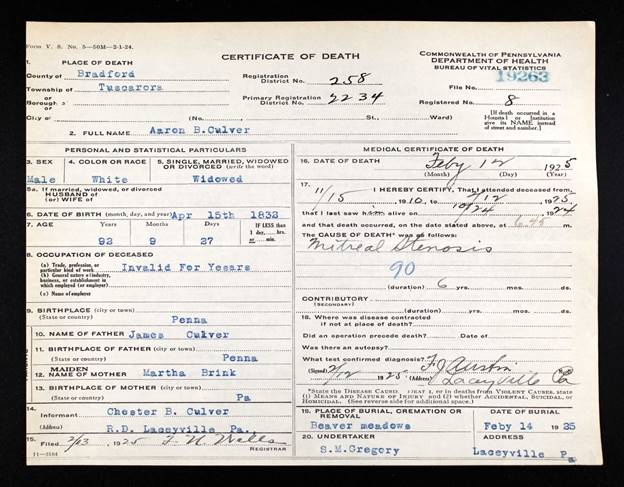 Form V. S. No. 5—50M—2-1-24.
CERTIFICATE OF DEATH
COMMONWEALTH OF PENNSYLVANIA
DEPARTMENT OF HEALTH
BUREAU OF VITAL STATISTICS
1. PLACE OF DEATH
County of Bradford
Township of Tuscarora
or
Borough of
or
City of (No. St., Ward)
Registration District No. 258
Primary Registration District No. 2234
19263
File No.
Registered No. 8
[If death occurred in a Hospital or Institution give its NAME instead of street and number.]
2. FULL NAME Aaron B.Culver
PERSONAL AND STATISTICAL PARTICULARS
3. SEX
Male
4. COLOR OR RACE
White
5. SINGLE, MARRIED, WIDOWED OR DIVORCED (write the word)
Widowed
5a. If married, widowed, or divorced
HUSBAND of
(or) WIFE of
6. DATE OF BIRTH (month, day, and year) Apr 15th 1832
7. AGE Years Months Days IF LESS than 1 day, hrs. or min.
92 9 27
8. OCCUPATION OF DECEASED
(a) Trade, profession, or particular kind of work Invalid For Yeears
(b) General nature of industry, business, or establishment in which employed (or employer)
(c) Name of employer
9. BIRTHPLACE (city or town)
(State or country) Penna
10. NAME OF FATHER James Culver
11. BIRTHPLACE OF FATHER (city or town)
(State or country) Penna
12. MAIDEN NAME OF MOTHER Martha Brink
13. BIRTHPLACE OF MOTHER (city or town)
(State or country) Pa
14. Informant Chester B. Culver
(Address) R.D. Laceyville Pa.,
15. Filed 1925 F. N. Wells
REGISTRAR
11—3184
MEDICAL CERTIFICATE OF DEATH
16. DATE OF DEATH Feby 12 1925
(Month) (Day) (Year)
17. I HEREBY CERTIFY, That I attended deceased from
11/15 1910, to 2/12 1925
that I last saw him alive on 10/24 1924
and that death occurred, on the date stated above, at 6.45 m.
The CAUSE OF DEATH* was as follows:
Mitreal Stenosis
90
(duration) 6 yrs. mos. ds.
CONTRIBUTORY
(SECONDARY)
(duration) yrs. mos. ds.
18. Where was disease contracted
if not at place of death?
Did an operation precede death? Date of
Was there an autopsy?
What test confirmed diagnosis?
(Signed) F J Austin
2/12 1925 (Address) Laceyville Pa
*State the DISEASE CAUSING DEATH, or in deaths from VIOLENT CAUSES, state (1) MEANS AND NATURE OF INJURY and (2) whether ACCIDENTAL, SUICIDAL, or HOMICIDAL. (See reverse side for additional space.)
19. PLACE OF BURIAL, CREMATION OR REMOVAL
Beaver meadows
DATE OF BURIAL
Feby 14 1925
20. UNDERTAKER
S.M.Gregory
ADDRESS
Laceyville Pa